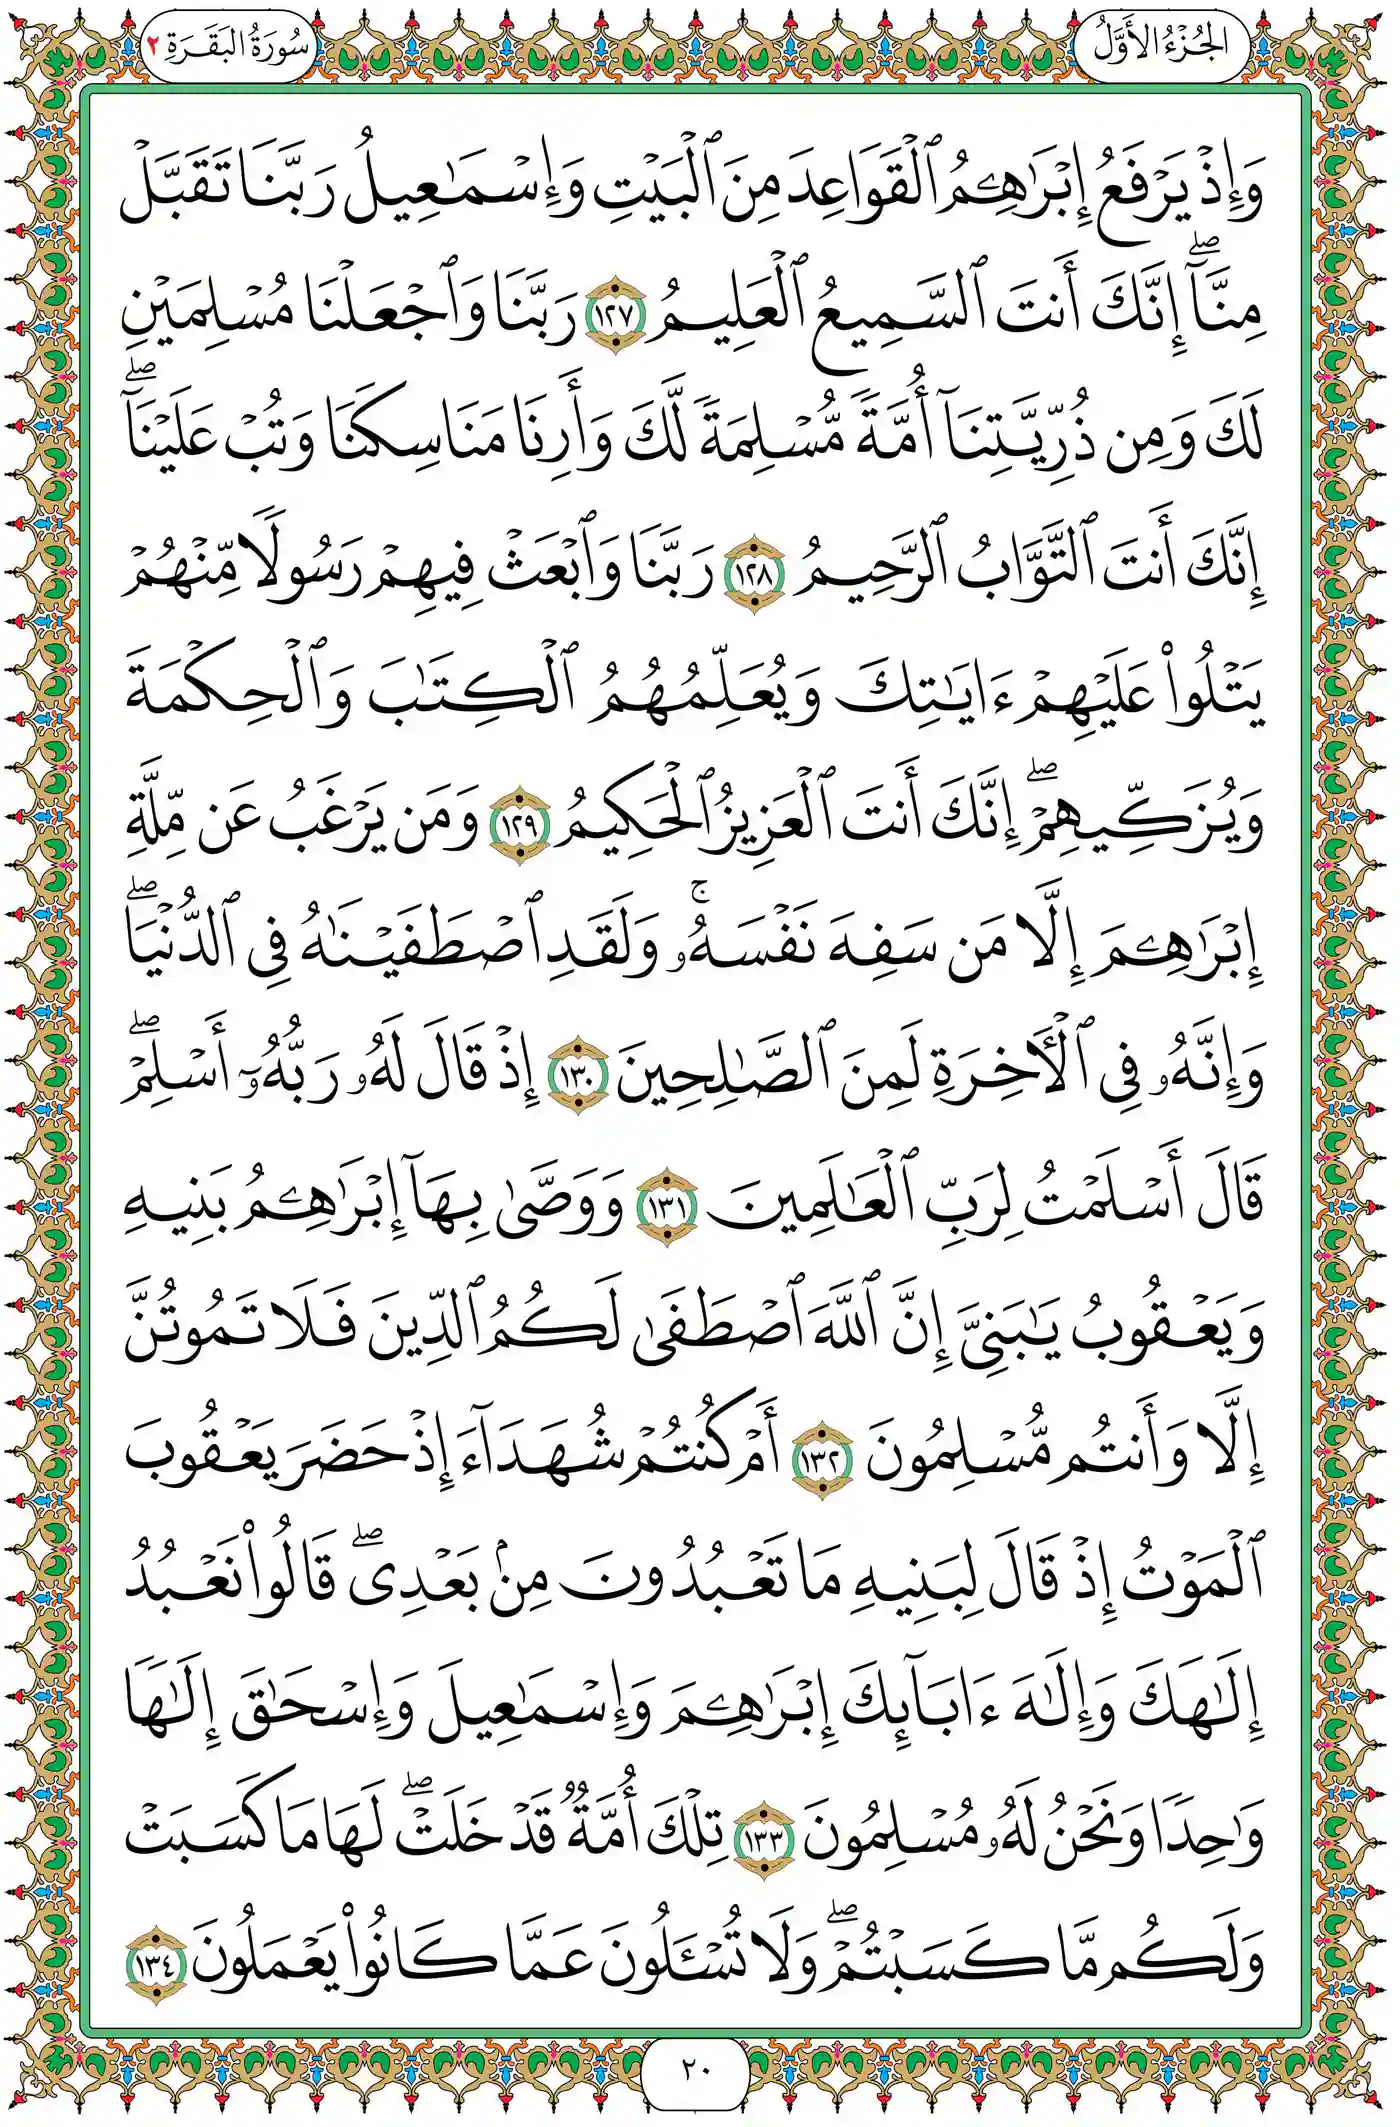 الجُزْءُ الأَوَّلُ
سُورَةُ البَقَرَةِ ٢
وَإِذْ يَرْفَعُ إِبْرَٰهِـۧمُ ٱلْقَوَاعِدَ مِنَ ٱلْبَيْتِ وَإِسْمَـٰعِيلُ رَبَّنَا تَقَبَّلْ
مِنَّآ ۖ إِنَّكَ أَنتَ ٱلسَّمِيعُ ٱلْعَلِيمُ ١٢٧ رَبَّنَا وَٱجْعَلْنَا مُسْلِمَيْنِ
لَكَ وَمِن ذُرِّيَّتِنَآ أُمَّةً مُّسْلِمَةً لَّكَ وَأَرِنَا مَنَاسِكَنَا وَتُبْ عَلَيْنَآ ۖ
إِنَّكَ أَنتَ ٱلتَّوَّابُ ٱلرَّحِيمُ ١٢٨ رَبَّنَا وَٱبْعَثْ فِيهِمْ رَسُولًا مِّنْهُمْ
يَتْلُوا۟ عَلَيْهِمْ ءَايَـٰتِكَ وَيُعَلِّمُهُمُ ٱلْكِتَـٰبَ وَٱلْحِكْمَةَ
وَيُزَكِّيهِمْ ۖ إِنَّكَ أَنتَ ٱلْعَزِيزُ ٱلْحَكِيمُ ١٢٩ وَمَن يَرْغَبُ عَن مِّلَّةِ
إِبْرَٰهِـۧمَ إِلَّا مَن سَفِهَ نَفْسَهُۥ ۚ وَلَقَدِ ٱصْطَفَيْنَـٰهُ فِى ٱلدُّنْيَا ۖ
وَإِنَّهُۥ فِى ٱلْـَٔاخِرَةِ لَمِنَ ٱلصَّـٰلِحِينَ ١٣٠ إِذْ قَالَ لَهُۥ رَبُّهُۥٓ أَسْلِمْ ۖ
قَالَ أَسْلَمْتُ لِرَبِّ ٱلْعَـٰلَمِينَ ١٣١ وَوَصَّىٰ بِهَآ إِبْرَٰهِـۧمُ بَنِيهِ
وَيَعْقُوبُ يَـٰبَنِىَّ إِنَّ ٱللَّهَ ٱصْطَفَىٰ لَكُمُ ٱلدِّينَ فَلَا تَمُوتُنَّ
إِلَّا وَأَنتُم مُّسْلِمُونَ ١٣٢ أَمْ كُنتُمْ شُهَدَآءَ إِذْ حَضَرَ يَعْقُوبَ
ٱلْمَوْتُ إِذْ قَالَ لِبَنِيهِ مَا تَعْبُدُونَ مِنۢ بَعْدِى ۖ قَالُوا۟ نَعْبُدُ
إِلَـٰهَكَ وَإِلَـٰهَ ءَابَآئِكَ إِبْرَٰهِـۧمَ وَإِسْمَـٰعِيلَ وَإِسْحَـٰقَ إِلَـٰهًا
وَٰحِدًا وَنَحْنُ لَهُۥ مُسْلِمُونَ ١٣٣ تِلْكَ أُمَّةٌ قَدْ خَلَتْ ۖ لَهَا مَا كَسَبَتْ
وَلَكُم مَّا كَسَبْتُمْ ۖ وَلَا تُسْـَٔلُونَ عَمَّا كَانُوا۟ يَعْمَلُونَ ١٣٤
٢٠